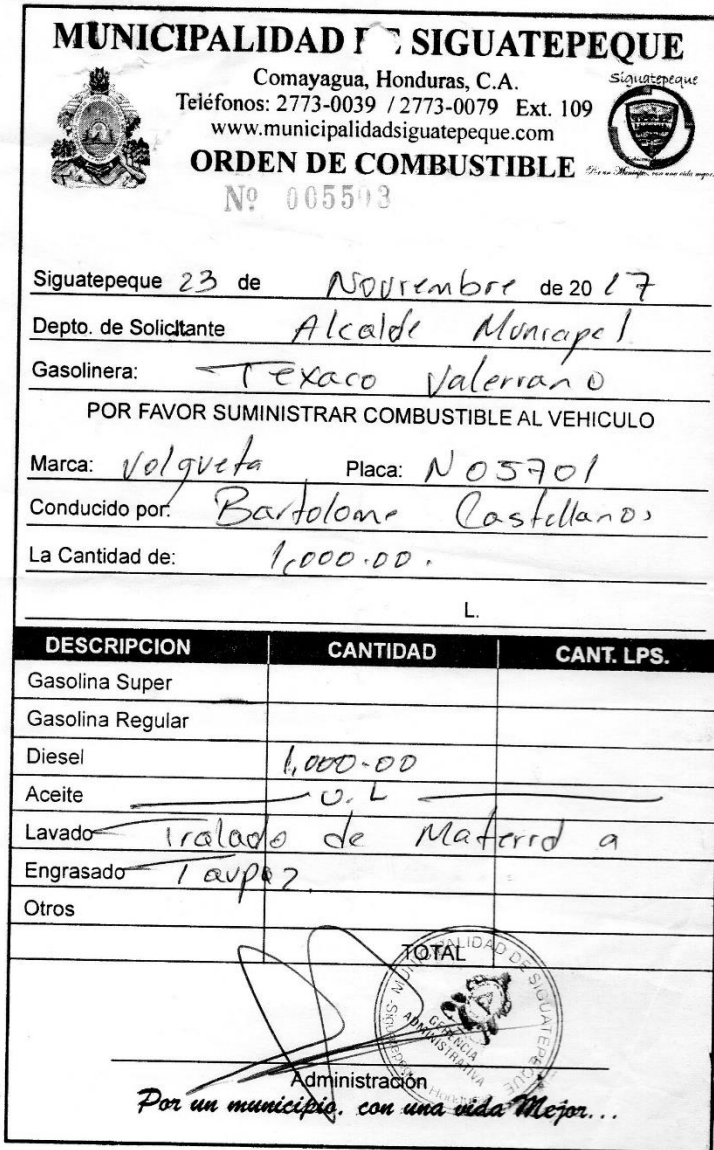 MUNICIPALIDAD DE SIGUATEPEQUE
Comayagua, Honduras, C.A.
Siguatepeque
Teléfonos: 2773-0039 / 2773-0079 Ext. 109
www.municipalidadsiguatepeque.com
ORDEN DE COMBUSTIBLE
Nº 005503
Siguatepeque 23 de Noviembre de 2017
Depto. de Solicitante Alcalde Municipal
Gasolinera: Texaco Valeriano
POR FAVOR SUMINISTRAR COMBUSTIBLE AL VEHICULO
Marca: Volqueta Placa: N 05701
Conducido por: Bartolome Castellanos
La Cantidad de: 1,000.00.
L.
DESCRIPCION CANTIDAD CANT. LPS.
Gasolina Super
Gasolina Regular
Diesel 1,000.00
Aceite U.L
Lavado Tralado de Material a
Engrasado
Otros
TOTAL
MUNICIPALIDAD DE SIGUATEPEQUE
GERENCIA
ADMINISTRATIVA
Administración
Por un municipio. con una vida Mejor...